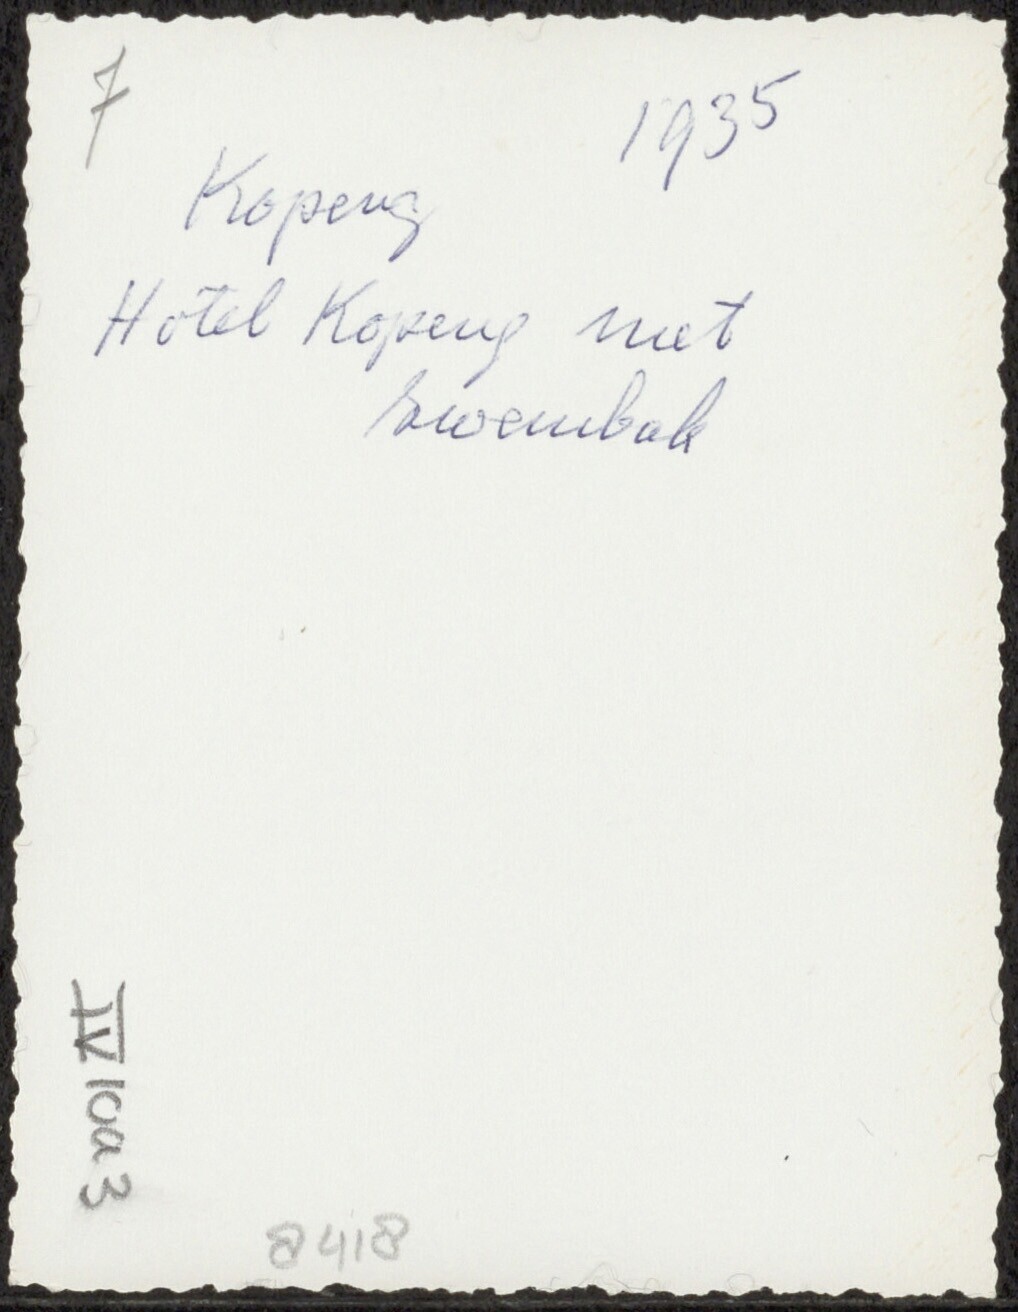 7
1935
Kopeng
Hotel Kopeng met
zwembak
IV 10a 3
8418